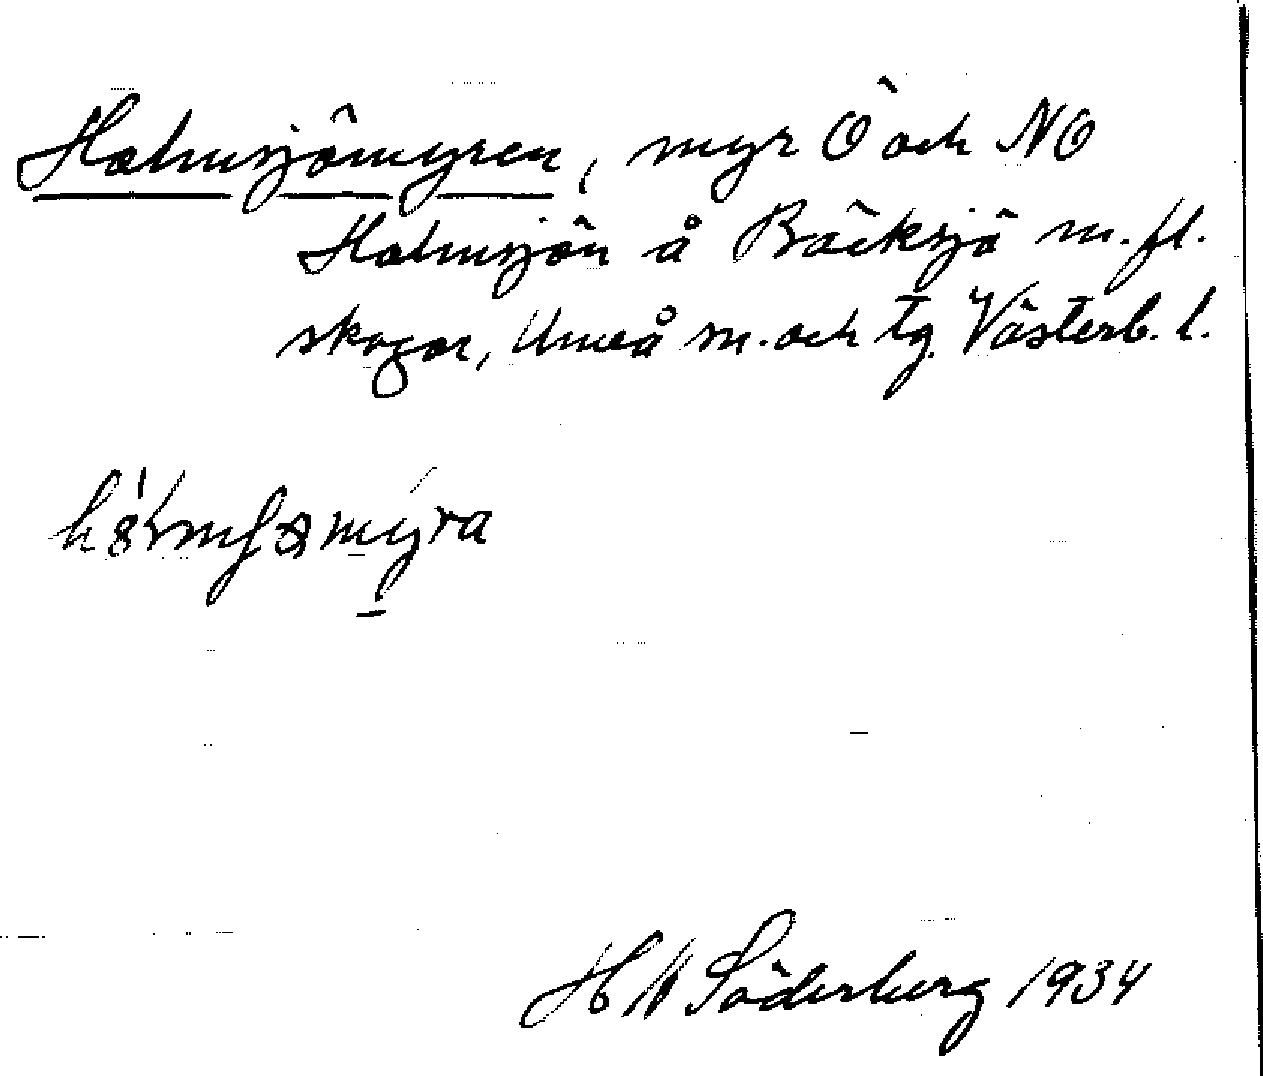 Holmsjömyren, myr Ö och NO
Holmsjön å Bäcksjö m. fl.
skogar, Umeå sn. och tg. Västerb. l.
Söderberg 1934